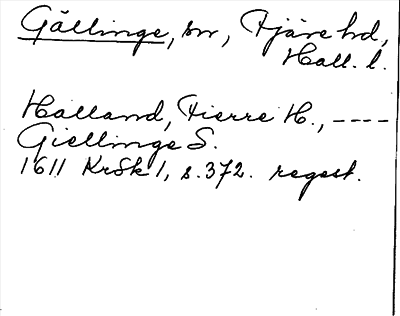 Gällinge, sn, Fjäre hd,
Hall. l.
Halland, Fierre H., ----
Giellinge S.
1611 KrSk 1, s. 372. regest.